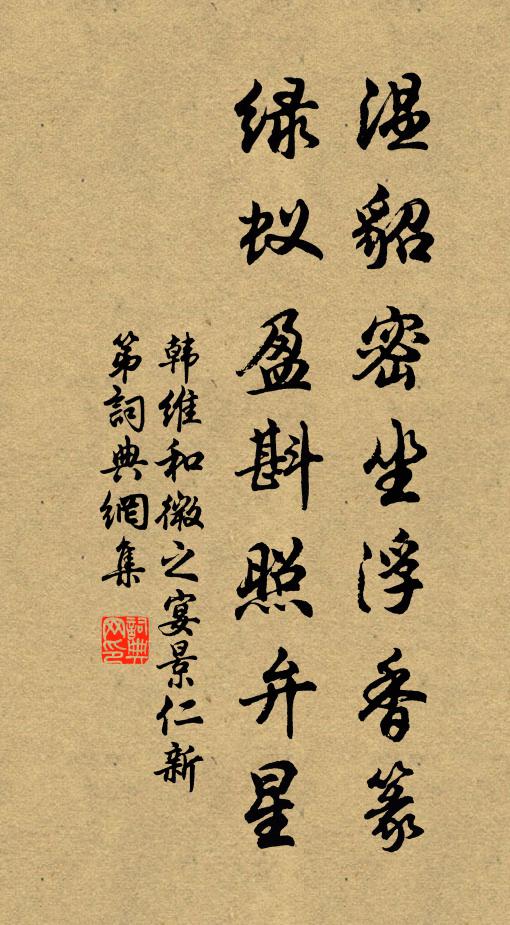 温貂密坐浮香篆
绿蚁盈斟照弁星
韩维和微之宴景仁新
第詞典網集
詞典网印